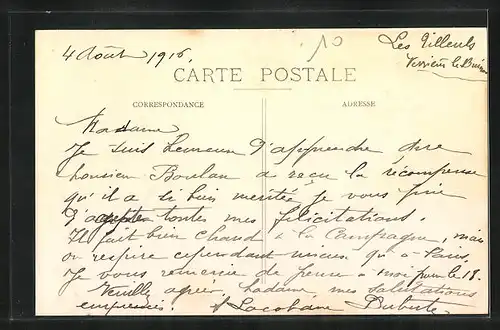 4 Août 1916.
10
Les Tilleuls
Verrières le Buisson
CARTE POSTALE
CORRESPONDANCE
ADRESSE
Madame
Je suis heureuse d'apprendre que
Monsieur Boulan a reçu la récompense
qu'il a si bien méritée je vous prie
d'accepter toutes mes félicitations.
Il fait bien chaud à la Campagne, mais
on respire cependant mieux qu'à Paris.
Je vous remercie de penser à moi pour le 18.
Veuillez agréer, Madame mes salutations
empressées.